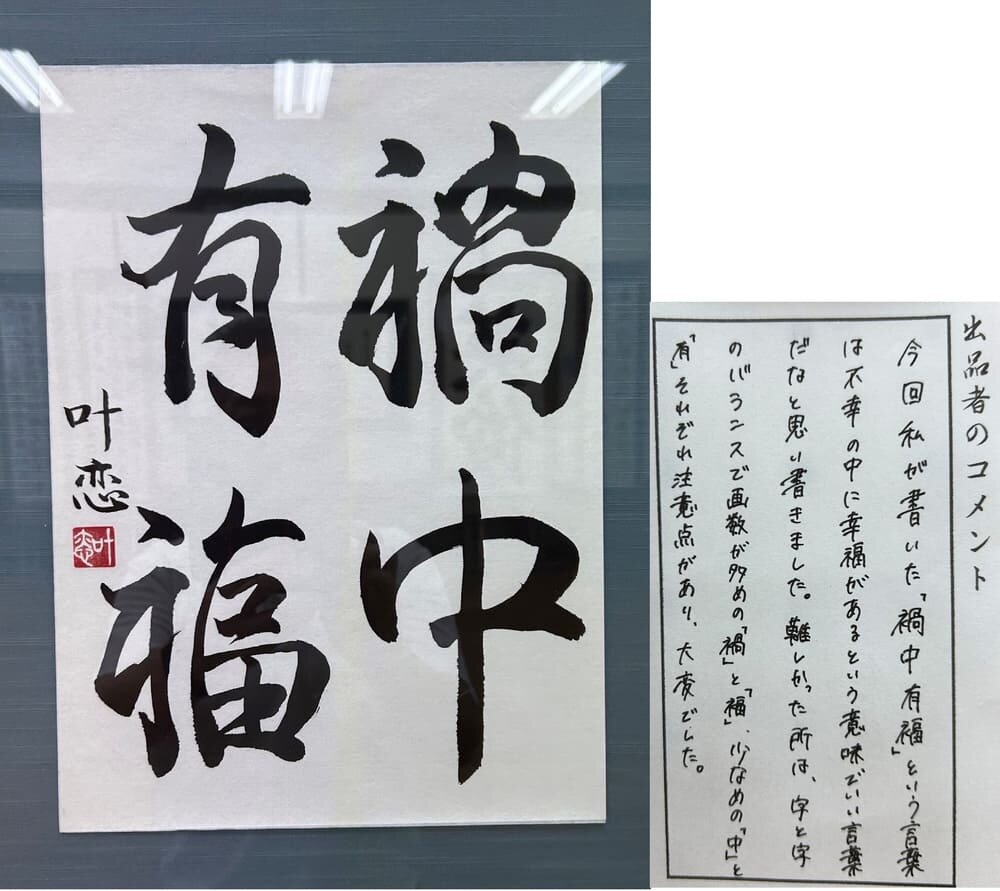 禍中
有福
叶恋
叶恋
出品者のコメント
今回私が書いた「禍中有福」という言葉
は不幸の中に幸福があるという意味でいい言葉
だなと思い書きました。難しかった所は、字と字
のバランスで画数が多めの「禍」と「福」、少なめの「中」と
「有」それぞれ注意点があり、大変でした。